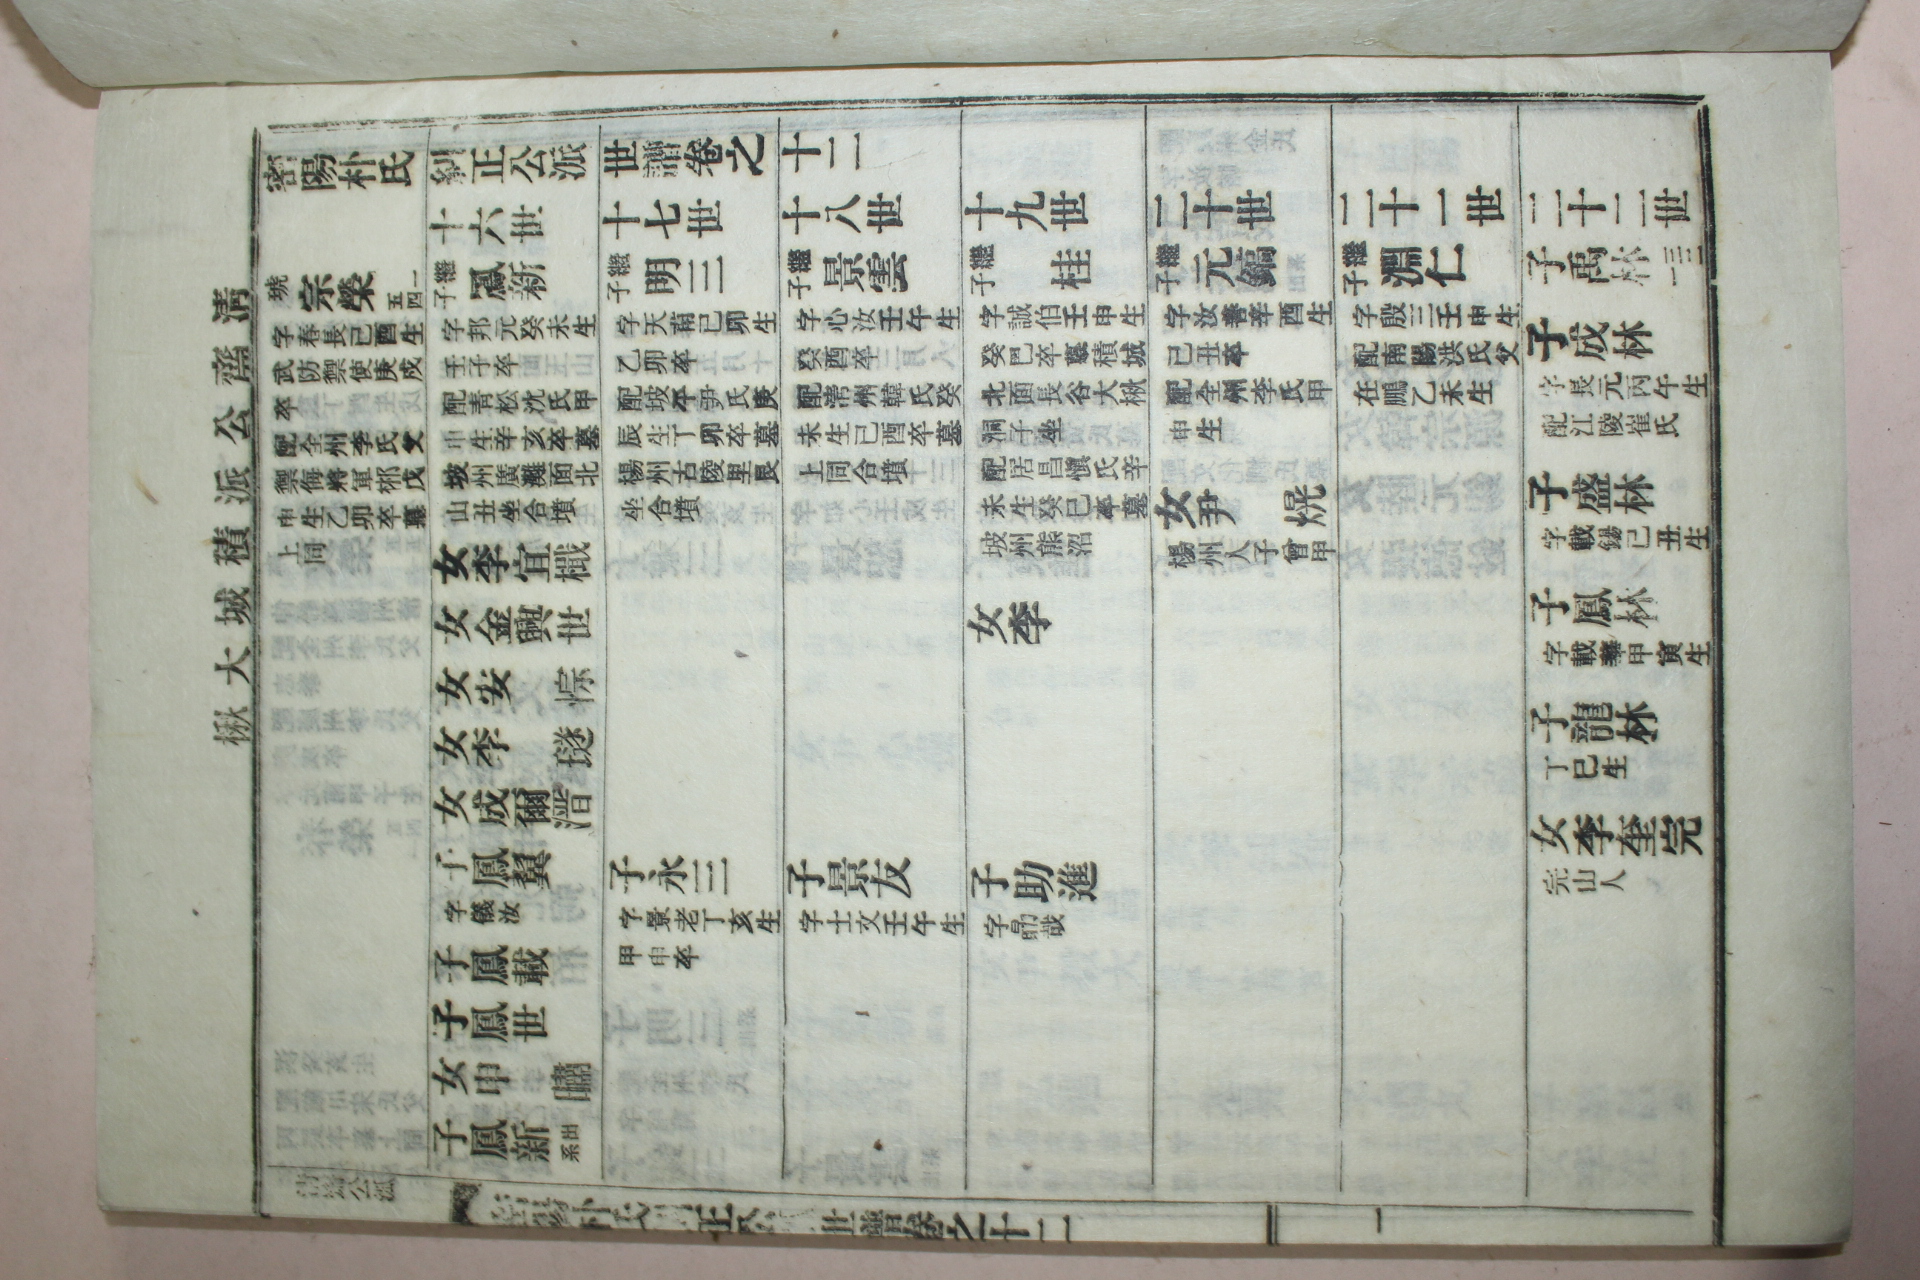 密陽朴氏糾正公派世譜卷之十二
淸齋公派積城大楸
號
宗榮
一四五
字春長己酉生
武防禦使庚戌
卒
配全州李氏父
禦侮將軍祁戊
申生乙卯卒墓
上同
十六世
繼子鳳新
字邦元癸未生
壬子卒
配靑松沈氏甲
申生辛亥卒墓
坡州廣灘面北
山丑坐合墳
女李宜檝
女金興世
女安悰
女李璲
女成爾溍
子鳳翼
字儀汝
子鳳載
子鳳世
女申嘯
子鳳新
出系
十七世
繼子明三
字天甫己卯生
乙卯卒
配坡平尹氏庚
辰生丁卯卒墓
楊州古陵里艮
坐合墳
子永三
字景老丁亥生
甲申卒
十八世
繼子景雲
字心汝壬午生
癸酉卒
配淸州韓氏癸
未生己酉卒墓
上同合墳
子景友
字士文壬午生
十九世
繼子桂
字誠伯壬申生
癸巳卒墓積城
北面長谷大楸
洞子坐
配居昌愼氏辛
未生癸巳卒墓
坡州熊沼
女李
子助進
字勗哉
二十世
繼子元鎬
字汝善辛酉生
己丑卒
配全州李氏甲
申生
女尹熀
楊州人子曾甲
二十一世
繼子淵仁
字殷三壬申生
配南陽洪氏父
在鵬乙未生
二十二世
子禹林
一三三
子成林
字長元丙午生
配江陵崔氏
子盛林
字載錫己丑生
子鳳林
字載華甲寅生
子龍林
丁巳生
女李奎完
完山人
淸齋公派
密陽朴氏糾正公派世譜卷之十二
一